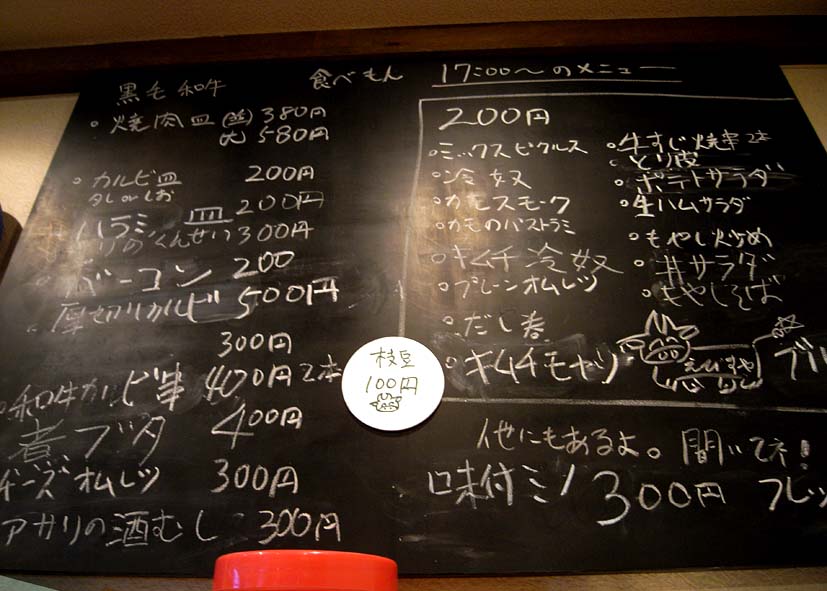 食べもん 17:00〜のメニュー
黒毛和牛
。焼肉皿(並) 380円
大 580円
。カルビ皿 200円
タレorしお
ハラミ皿 200円
のくんせい 300円
。ベーコン 200
。厚切りカルビ 500円
300円
。和牛カルビ串 400円 2本
煮ブタ 400円
チーズオムレツ 300円
アサリの酒むし 300円
枝豆
100円
200円
。ミックスピクルス
。冷奴
。カモスモーク
。カモのパストラミ
。キムチ冷奴
。プレーンオムレツ
。だし巻
。キムチモヤシ
。牛すじ焼串 2本
。とり皮
。ポテトサラダ
。生ハムサラダ
。もやし炒め
。サラダ
。もやしそば
えびすや
ブル
他にもあるよ。聞いてネ!
味付ミノ 300円 フレッ